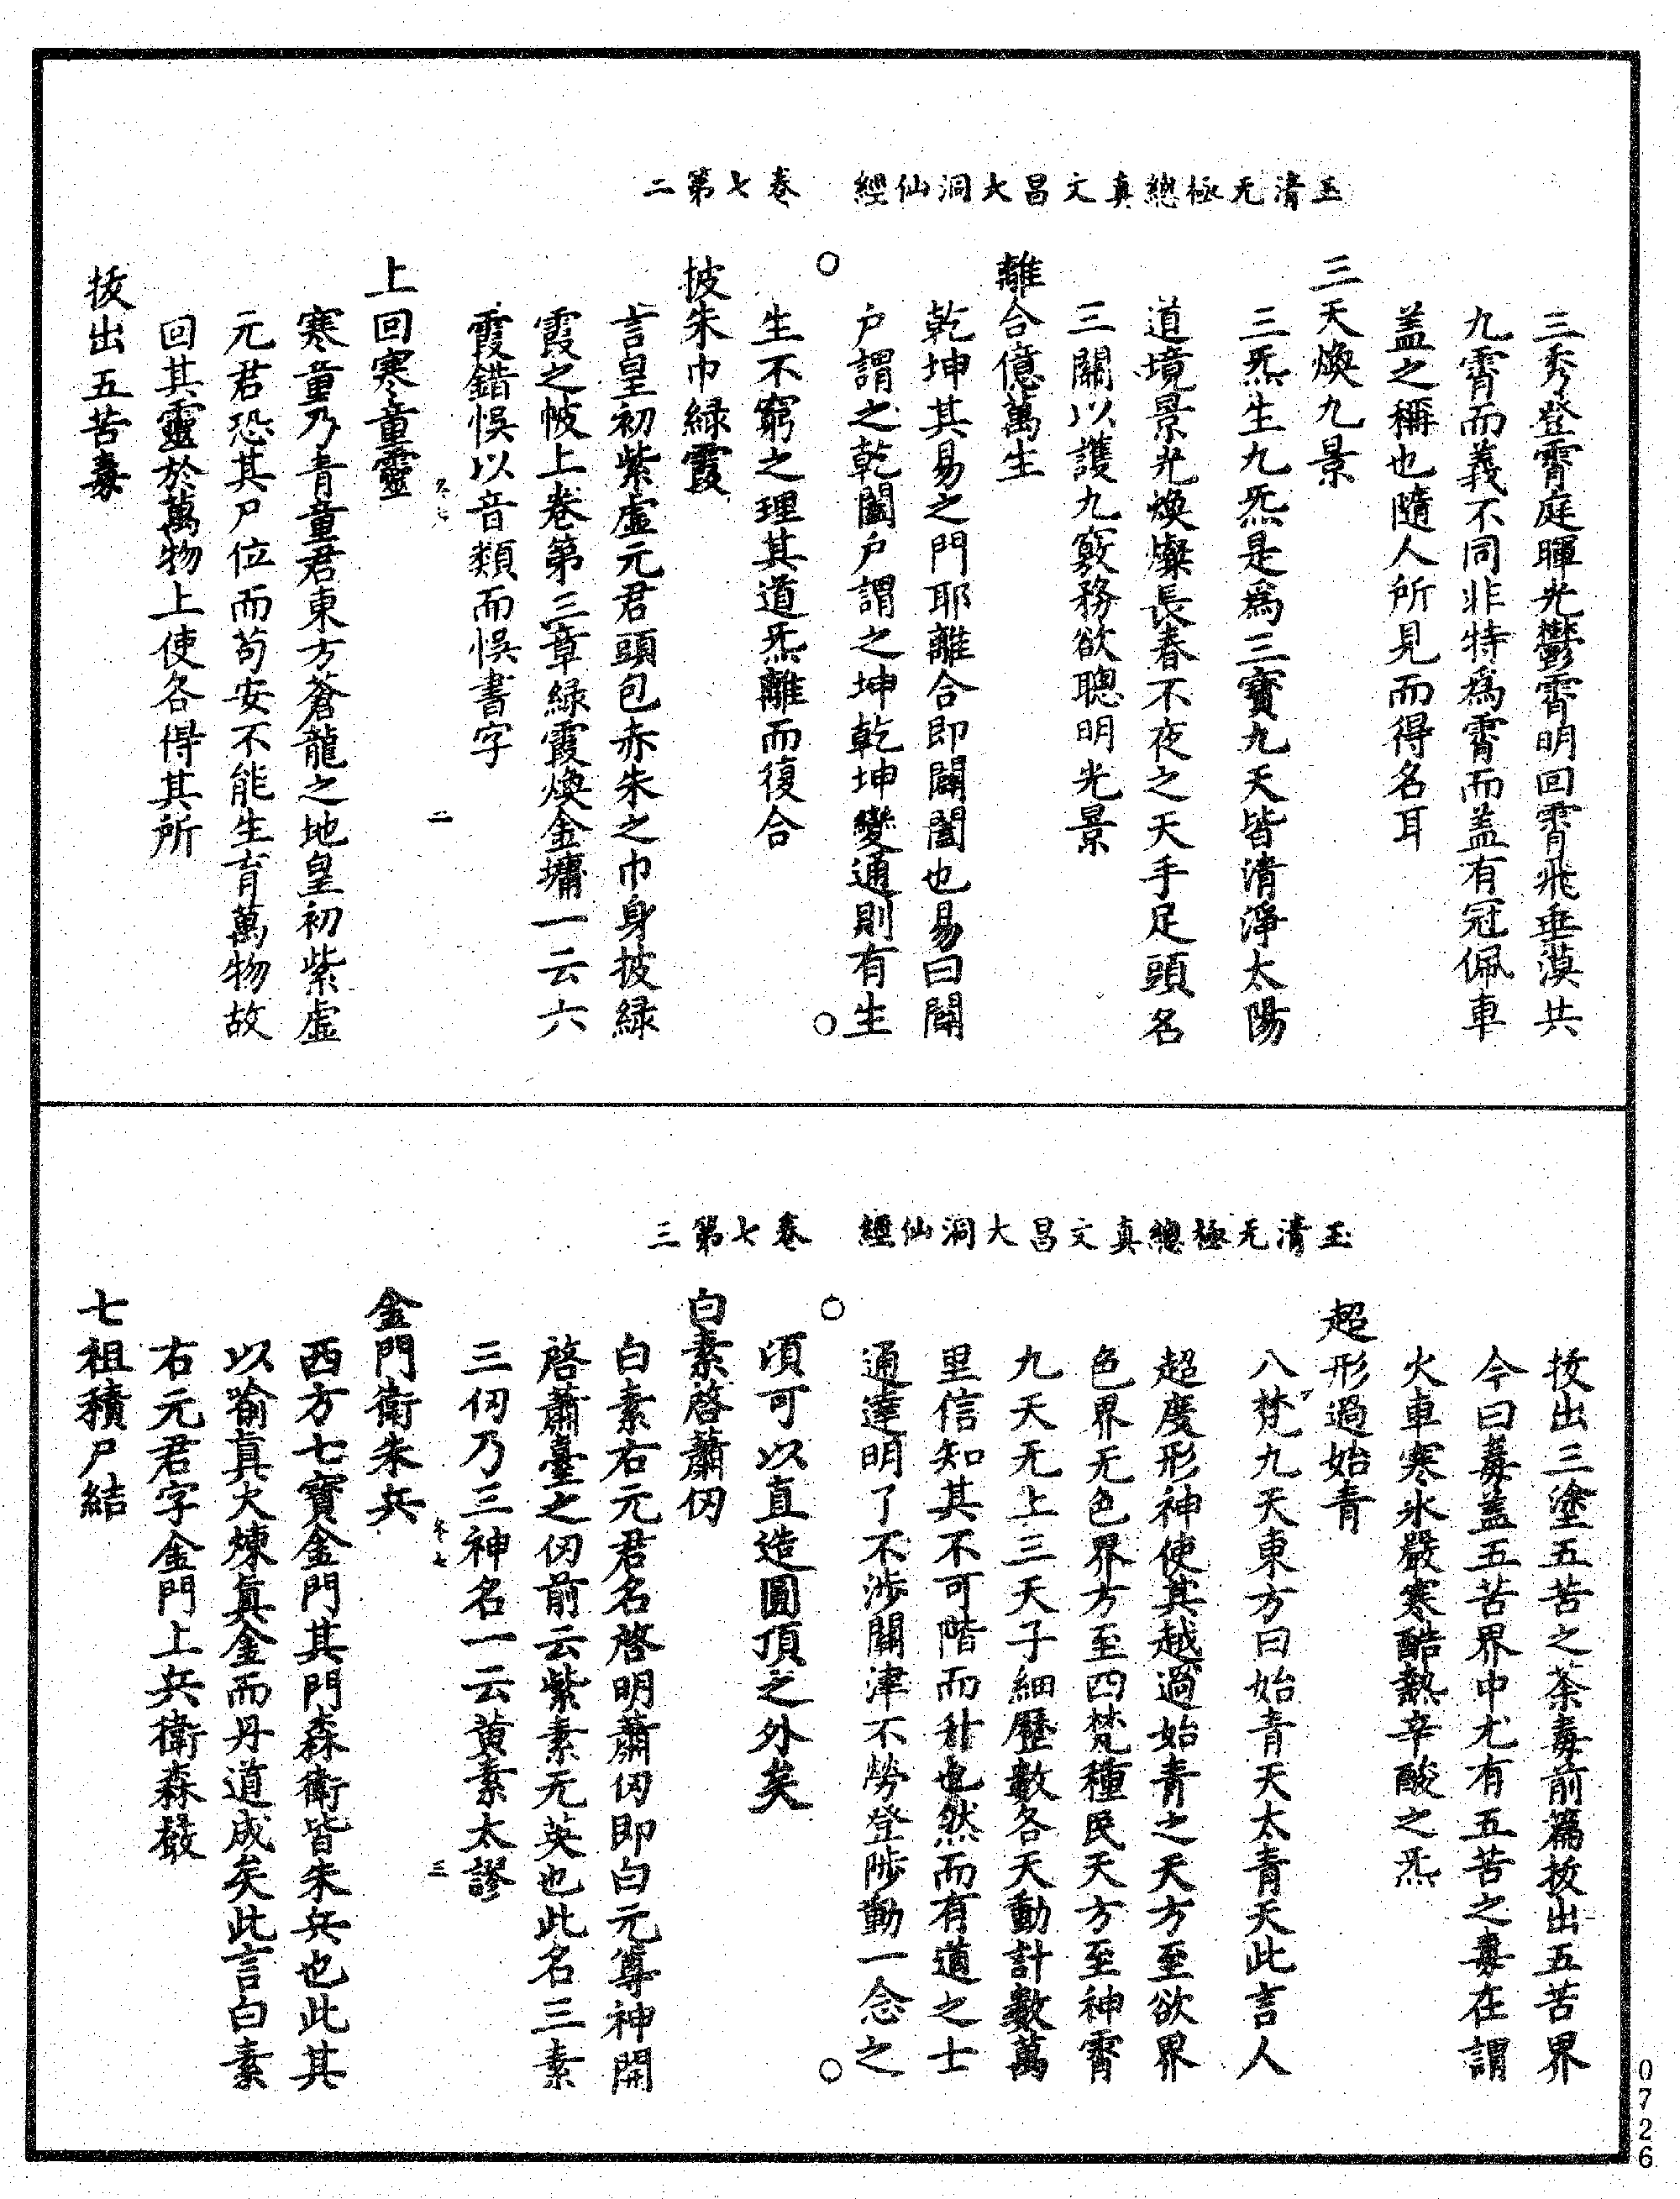 玉清无極總真文昌大洞仙經　卷七第二
三秀登霄庭暉光鬱霄明回霄飛垂漠共
九霄而義不同非特為霄而盖有冠佩車
盖之稱也隨人所見而得名耳
三天煥九景
三炁生九炁是為三寶九天皆清淨太陽
道境景光煥爍長春不夜之天手足頭名
三關以護九竅務欲聰明光景
離合億萬生
乾坤其易之門耶離合即闢闔也易曰闢
戶謂之乾闔戶謂之坤乾坤變通則有生
生不窮之理其道炁離而復合
披朱巾緑霞
言皇初紫虛元君頭包赤朱之巾身披緑
霞之帔上卷第三章緑霞煥金墉一云六
霞錯悞以音類而悞書字
上回寒童靈
寒童乃青童君東方蒼龍之地皇初紫虛
元君恐其尸位而苟安不能生育萬物故
回其靈於萬物上使各得其所
二
拔出五苦毒
玉清无極總真文昌大洞仙經　卷七第三
拔出三塗五苦之荼毒前篇拔出五苦界
今曰毒盖五苦界中尤有五苦之毒在謂
火車寒氷嚴寒酷熱辛酸之炁
超形過始青
八梵九天東方曰始青天太青天此言人
超度形神使其越過始青之天方至欲界
色界无色界方至四梵種民天方至神霄
九天无上三天子細歷數各天動計數萬
里信知其不可階而升也然而有道之士
通達明了不涉關津不勞登陟動一念之
頃可以直造圓頂之外矣
白素啓蕭仞
白素右元君名啓明蕭仞即白元尊神開
啓蕭臺之仞前云紫素无英也此名三素
三仞乃三神名一云黄素太謬
金門衛朱兵
西方七寶金門其門森衛皆朱兵也此其
以喻真火煉真金而丹道成矣此言白素
右元君字金門上兵衛森嚴
卷七
三
七祖積尸結
0726